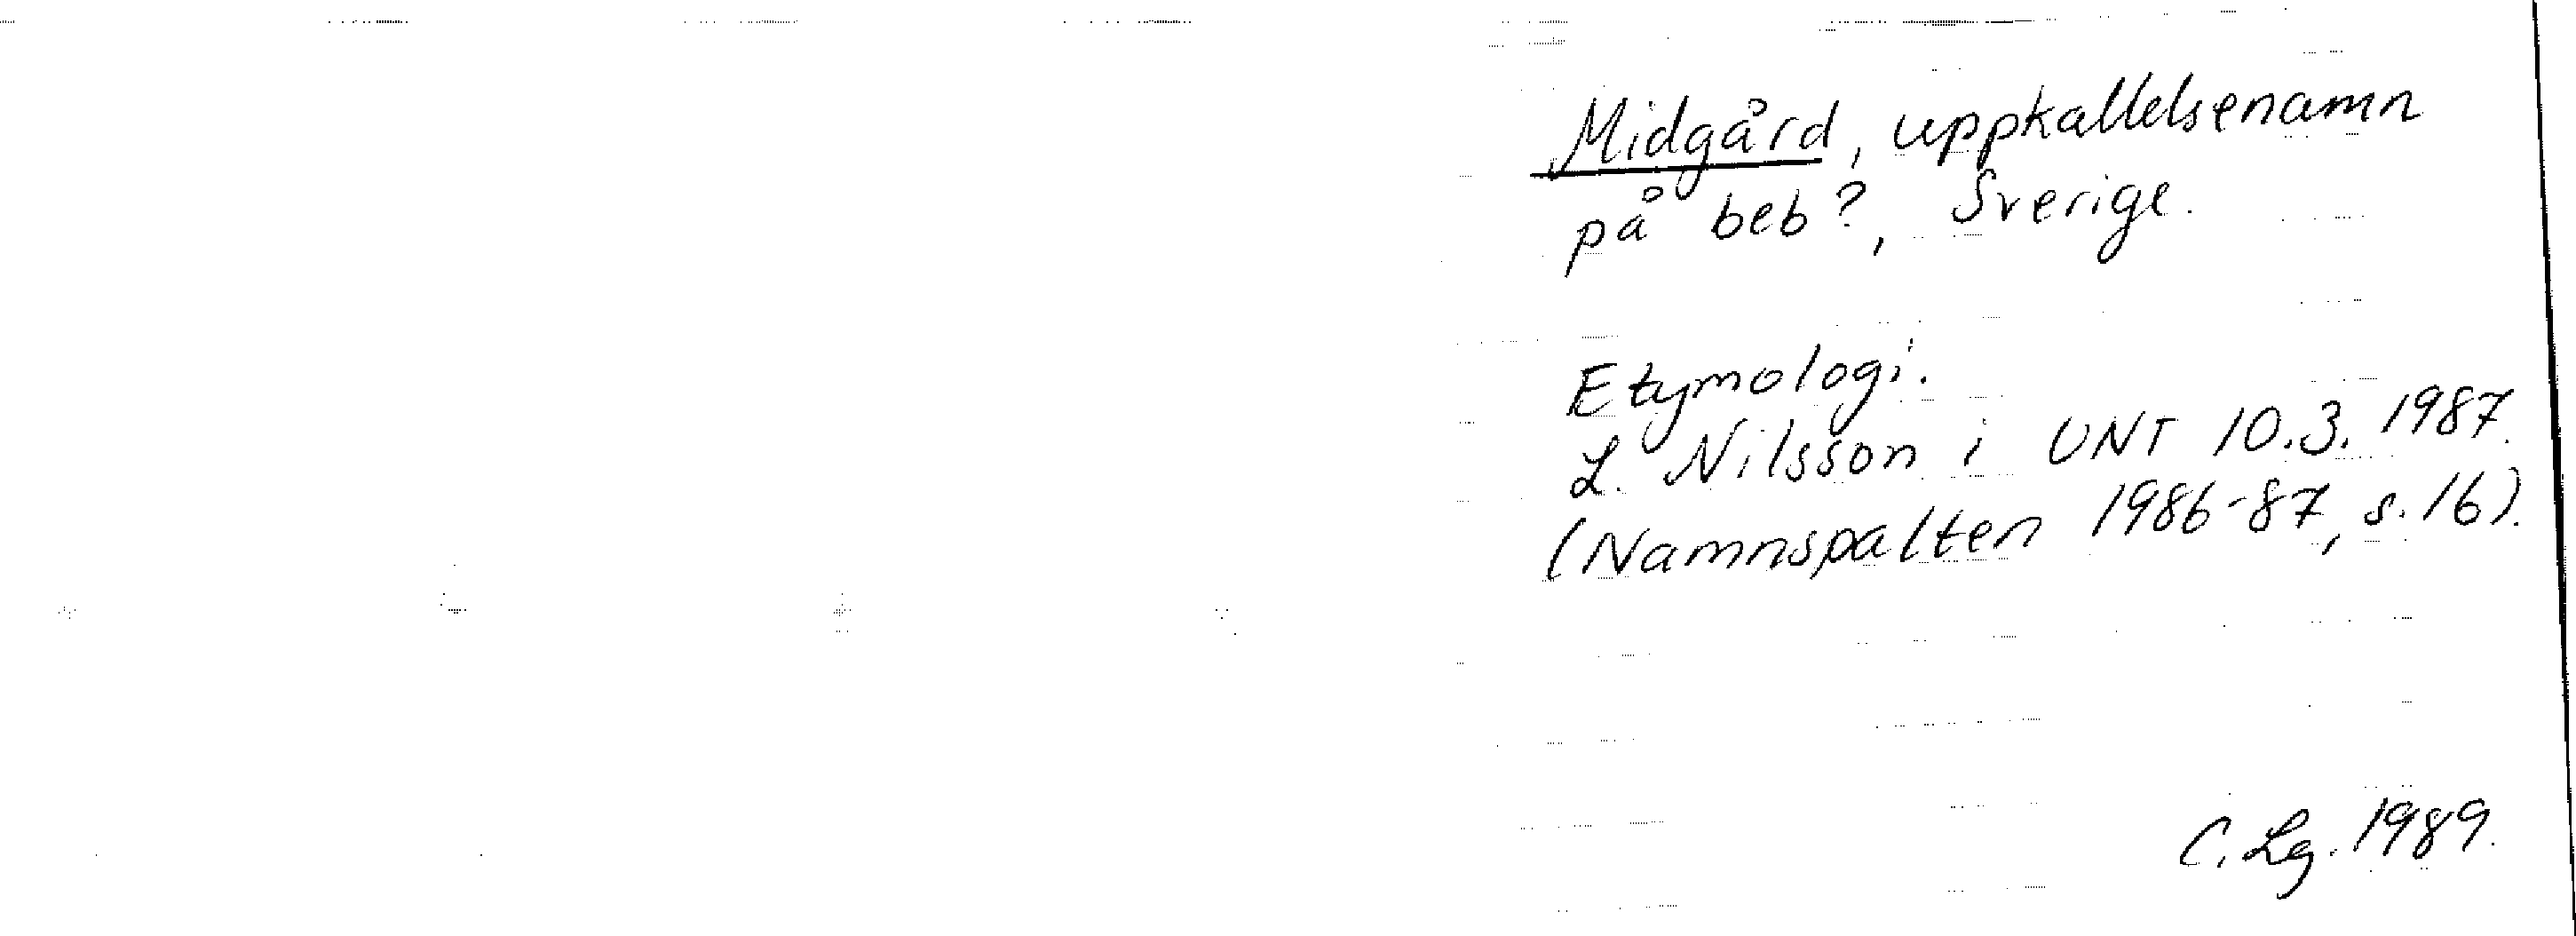 Midgård, uppkallelsenamn
på beb?, Sverige.
Etymologi.
L. Nilsson i UNT 10.3.1987.
(Namnspalten 1986-87, s. 16).
C. Lg. 1989.